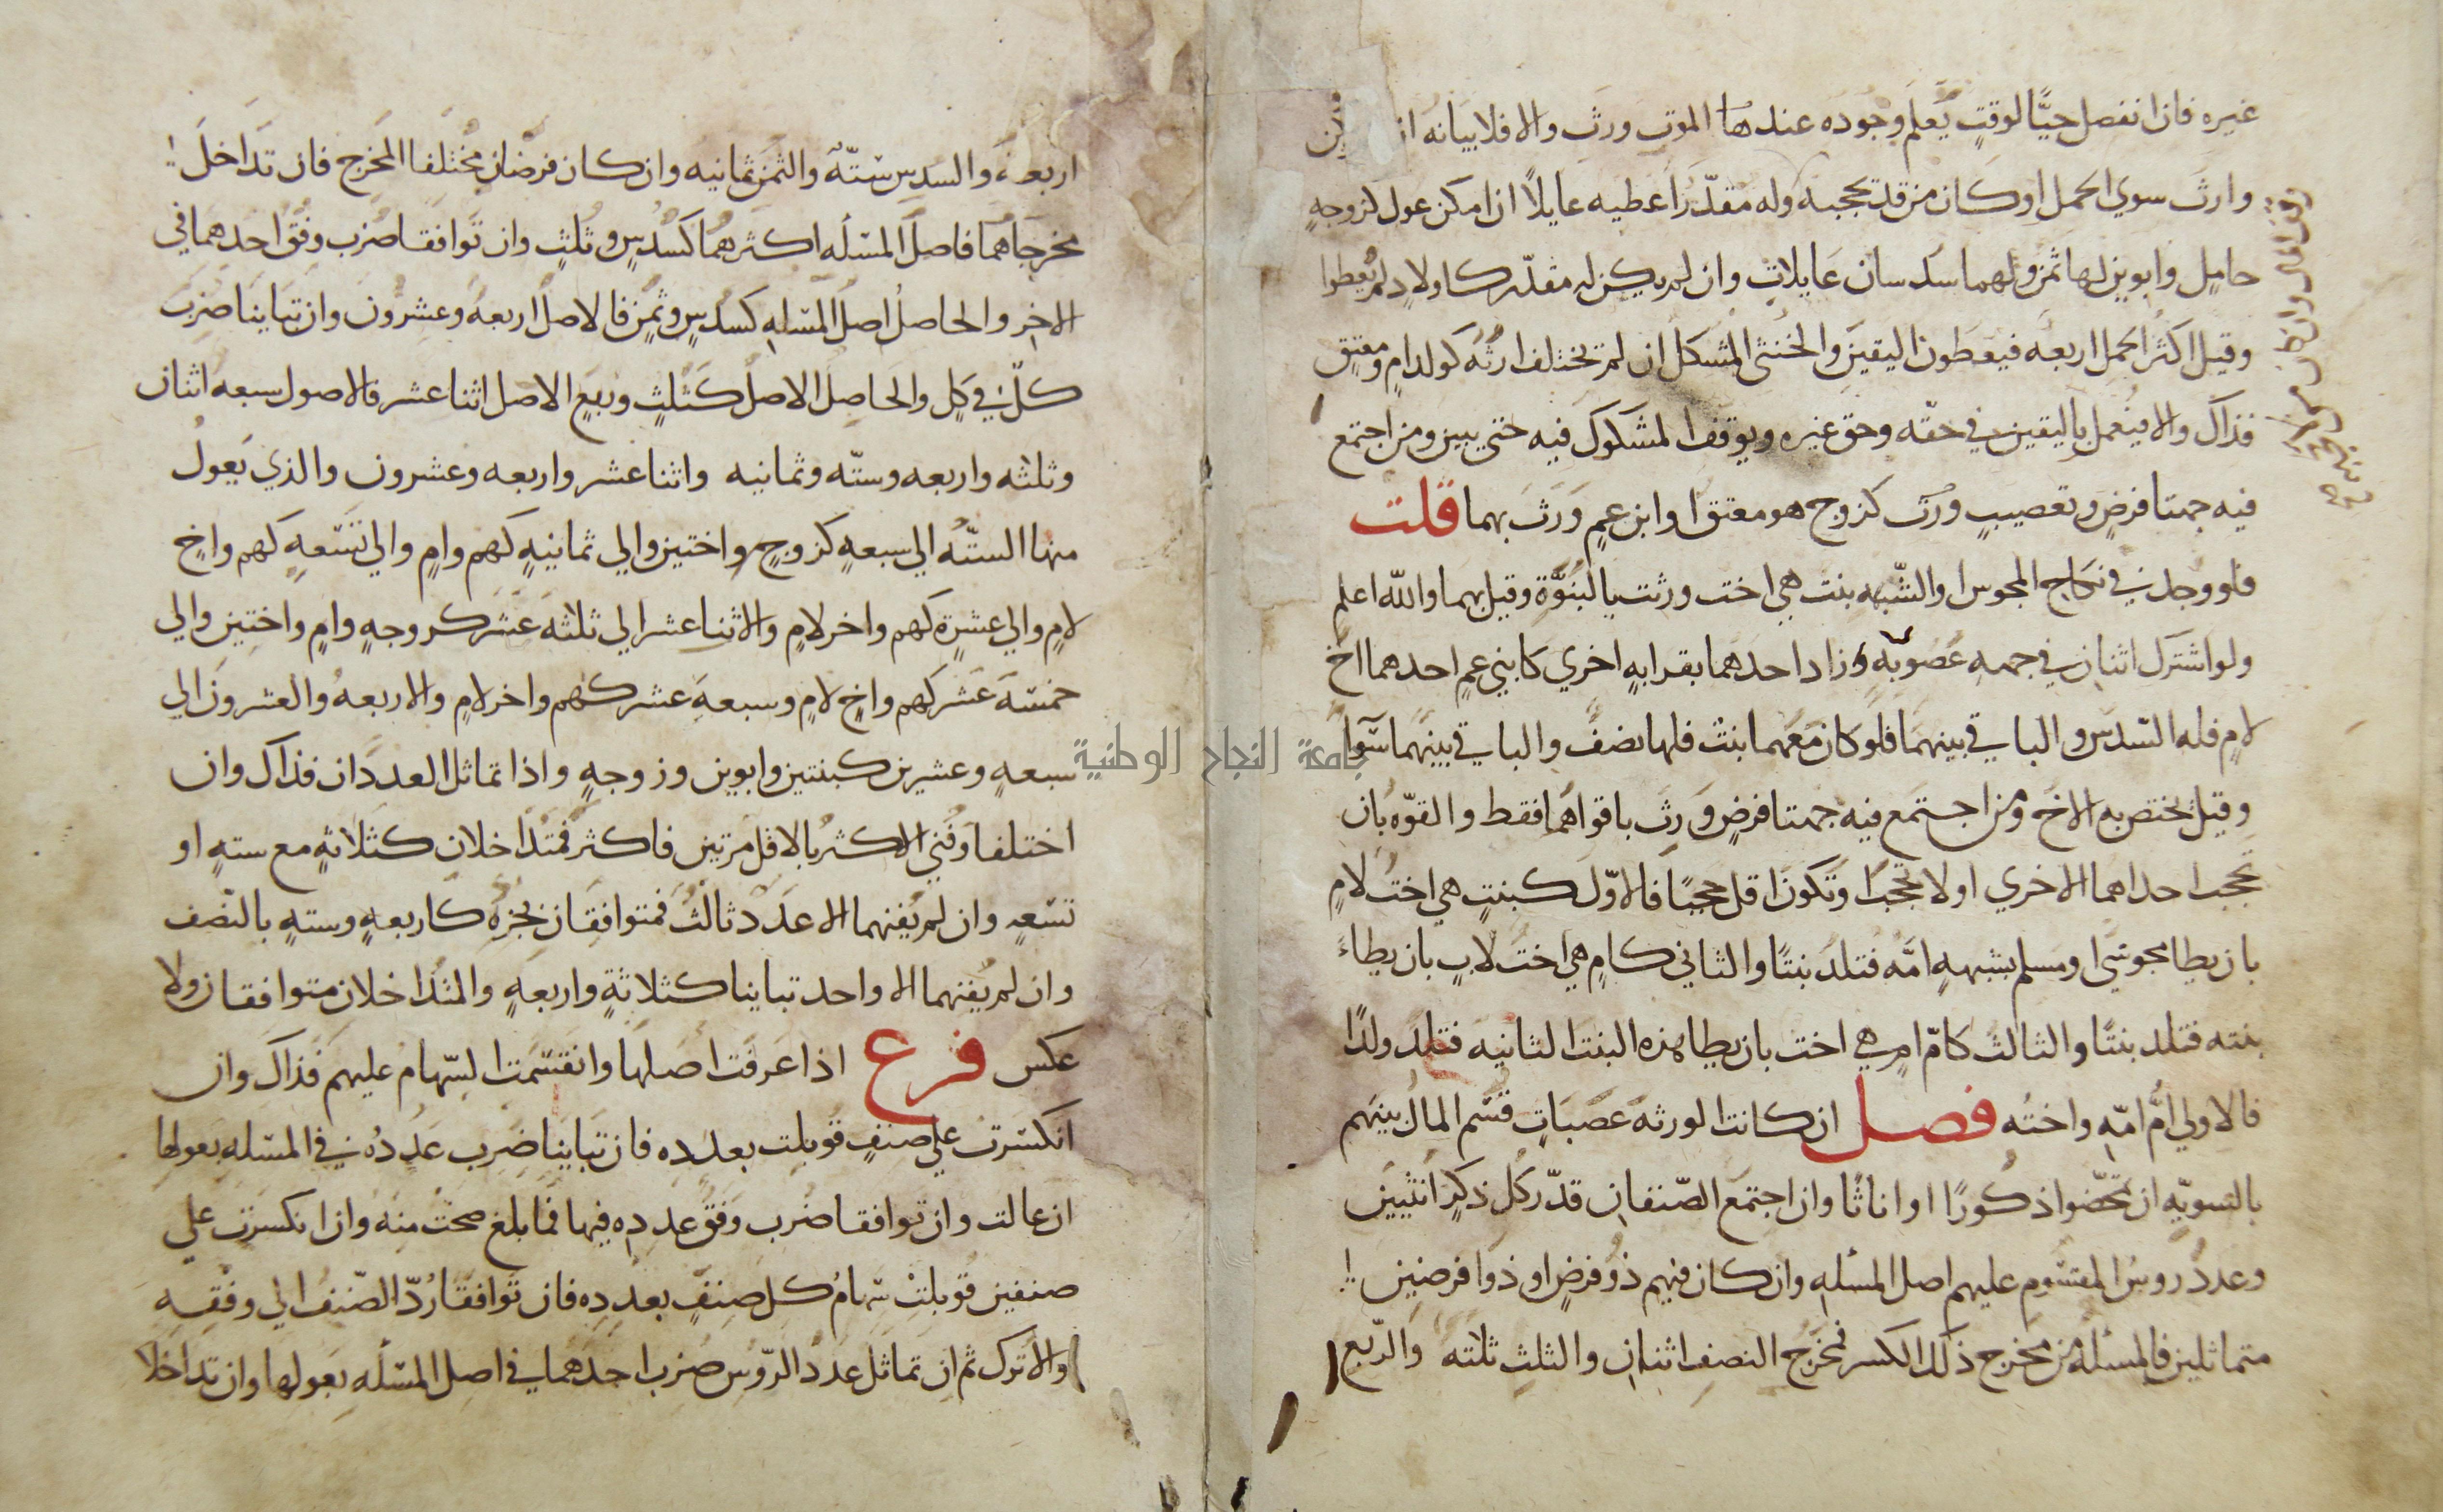 غيره فان انفصل حيًّا لوقتٍ يُعلم وجوده عندها الموت ورث والا فلا بيانه ان
وارث سوي الحمل او كان من قد يحجبه وله مقدّر اعطيه عايلاً ان امكن عول كزوجهٍ
حاملٍ وابوين لها ثمن ولهما سدسان عايلات وان لم يكن له مقدّر كاولادٍ لم يُعطوا
وقيل اكثر الحمل اربعه فيعطون اليقين والخنثى المشكل ان لم يختلف ارثُه كولد امٍ ومعتِقٍ
فذاك والا فيُعمل باليقين في حقّه وحق غيره ويوقف المشكوك فيه حتى يبين ومن اجتمع
فيه جهتا فرضٍ وتعصيبٍ ورث كزوج هو معتق او ابن عمٍ وَرَث بهما قلت
فلو وجد في نكاح المجوس او الشّبهه بنت هي اخت ورثت بالبنوَّة وقيل بهما والله اعلم
ولو اشترك اثنان في جهه عصوبه وزاد احدهما بقرابهٍ اخري كابني عمٍ احدهما اخ
لامٍ فله السّدس والباقي بينهما فلو كان معهما بنت فلها نصفٌ والباقي بينهما سَواً
وقيل يختص به الاخ ومن اجتمع فيه جهتا فرضٍ وَرِث باقواهما فقط والقوّه بان
تحجب احداهما الاخري او لا تُحجب او تكون اقل حجبًا فالاوّل كبنتٍ هي اخت لامٍ
بان يطا مجوسي او مسلم بشبههٍ امَّه فتلد بنتًا والثاني كامٍ هي اخت لابٍ بان يطاءَ
بنته فتلد بنتًا والثالث كامّ امٍ هي اخت بان يطا هذه البنت الثانيه فتلد ولدًا
فالاولي امُّ امّهِ واختُه فصل ان كانت الورثة عصباتٍ قُسم المالُ بينهم
بالسويّهِ ان تمحّضوا ذكورًا او اناثًا وان اجتمع الصّنفان قدّر كل ذكرٍ انثيين
وعددُ روسُ المقسوم عليهم اصل المسئله وان كان فيهم ذو فرضٍ او ذوا فرضين
متماثلين فالمسئلة من مخرج ذلك الكسر فمخرج النصف اثنان والثلث ثلاثه والرّبع
اربعة والسدس ستّة والثمن ثمانيه وان كان فرضان مختلفا المخرج فان تَداخل
مخرجاهما فاصل المسئله اكثرهما كسدسٍ وثُلثٍ وان توافقا ضُرب وفق احدهما في
الاخر والحاصل اصل المسئله كسُدسٍ وثُمنٍ فالاصل اربعة وعشرون وان تباينا ضُرِبَ
كلّ في كلٍ والحاصل الاصل كثلثٍ وربعٍ الاصل اثنا عشر فالاصول سبعه اثنان
وثلثه واربعه وستّه وثمانيه واثنا عشر واربعه وعشرون والذي يعولُ
منها الستّه الي سبعهٍ كزوجٍ واختين والي ثمانيهٍ كهم وامٍ والي تسعهٍ كهم واخٍ
لامٍ والي عشرة كهم واخر لامٍ والاثنا عشر الي ثلثة عشر كزوجهٍ وامٍ واختين والي
خمسة عشر كهم واخٍ لامٍ وسبعهَ عشر كهم واخر لامٍ والاربعهُ والعشرون الي
سبعهٍ وعشرين كبنتين وابوين وزوجهٍ واذا تماثل العددان فذاك وان
اختلفا وفني الاكثر بالاقل مرتين فاكثر فمتداخلان كثلاثةٍ مع ستهٍ او
تسعهٍ وان لم يُفنهما الا عدد ثالث فمتوافقان بجزءه كاربعهٍ وستهٍ بالنّصف
وان لم يُفنهما الا واحد تباينا كثلاثةٍ واربعهٍ والمتداخلان متوافقان ولا
عكس فرع اذا عرفت اصلها وانقسمت السّهام عليهم فذاك وان
انكسرت علي صنفٍ قوبلت بعدده فان تباينا ضُرب عدده في المسئله بعولها
ان عالت وان توافقا ضُرب وفق عدده فيها فما بلغ صحت منه وان انكسرت علي
صنفين قوبلت سهامُ كل صنفٍ بعدده فان توافقا رُدّ الصّنف الي وفقه
والا ترك ثم ان تماثل عدد الرّوس ضُرب احدهما في اصل المسئله بعولها وان تداخلا
جامعة النجاح الوطنية